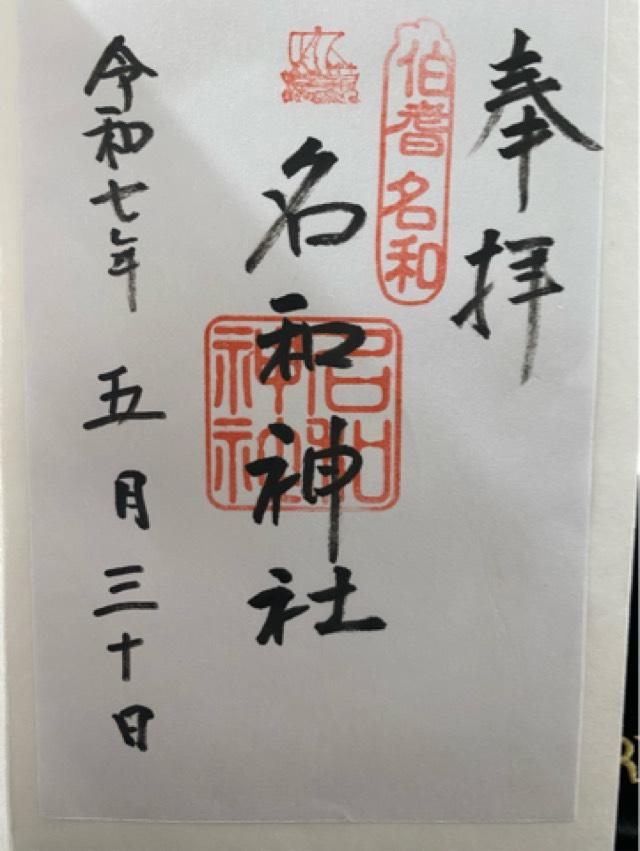 奉拝
伯耆名和
名和神社
名和神社
令和七年 五月三十日